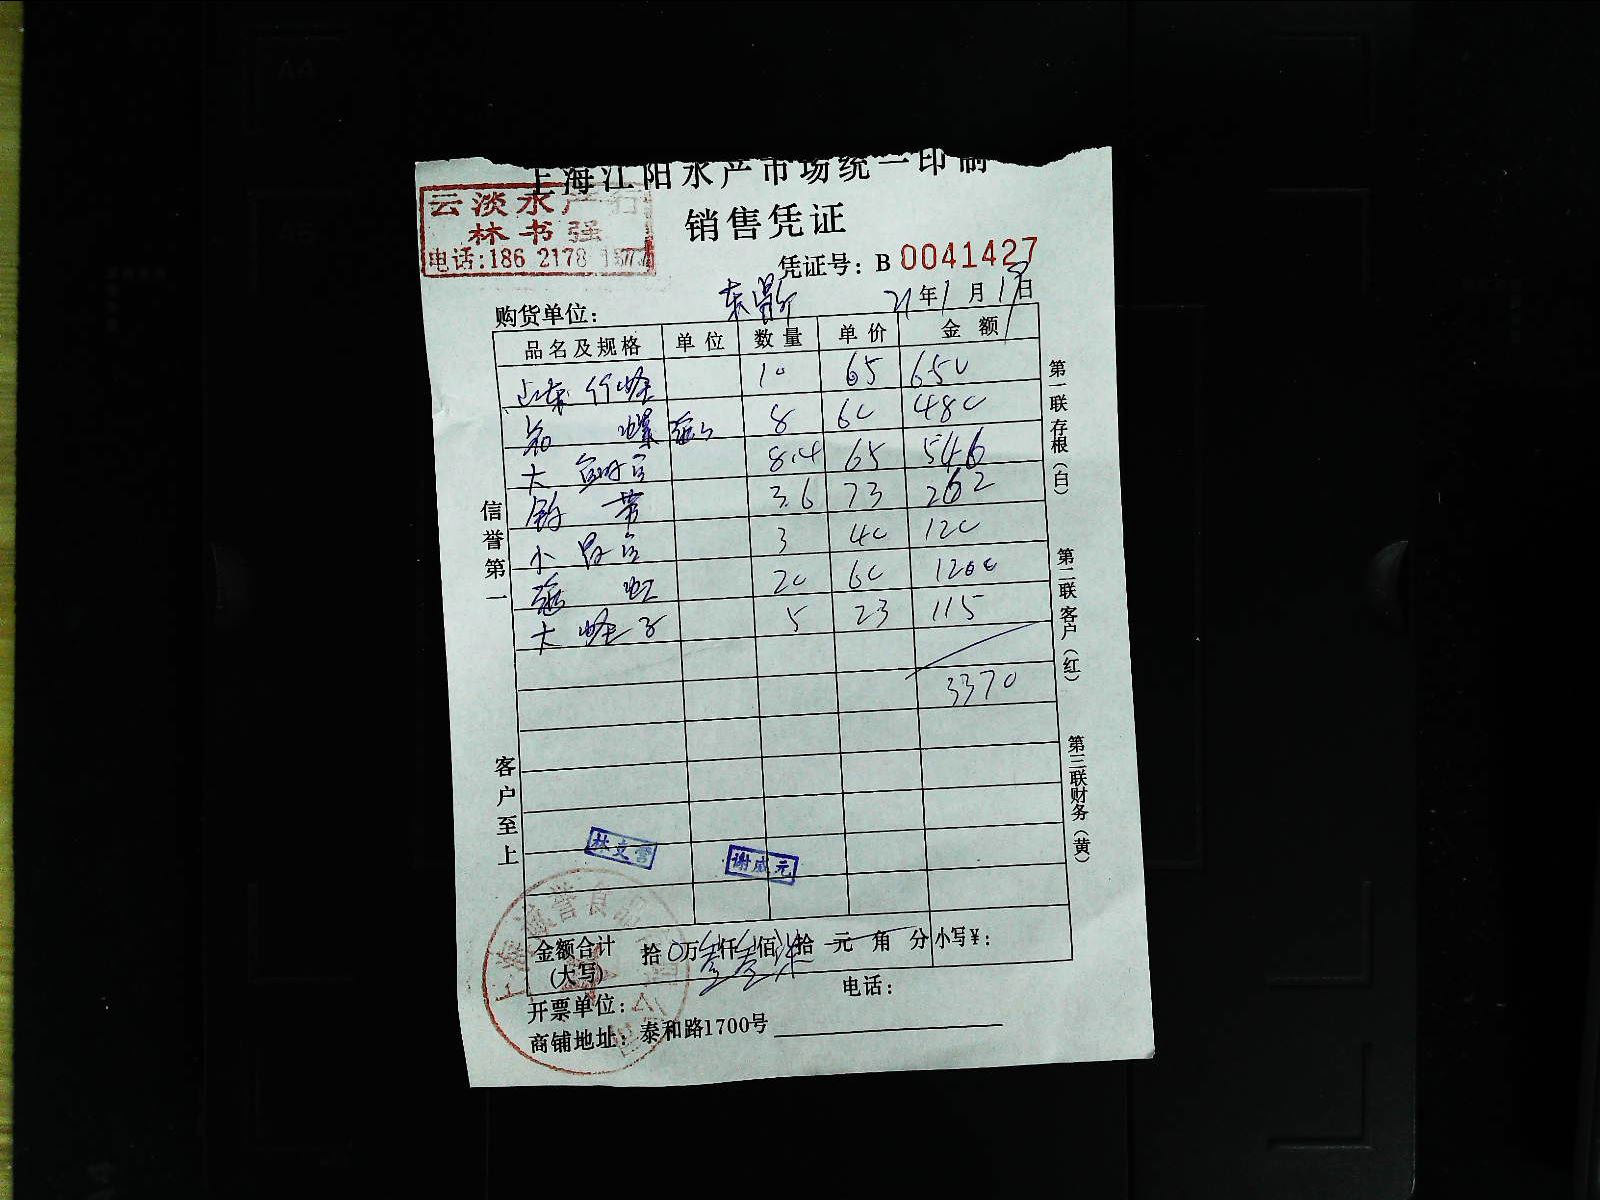 上海江阳水产市场统一印制
云淡水产行
林书强
电话:186 2178 1577
销售凭证
凭证号: B 0041427
购货单位:
21年1月19日
品名及规格 单位 数量 单价 金额
山东竹蛏 10 65 650
螺 8 60 480
大 8.4 65 546
带 3.6 73 262
小 3 40 120
虹 20 60 1200
大蛏子 5 23 115
3370
信誉第一
客户至上
第一联存根(白)
第二联客户(红)
第三联财务(黄)
谢成元
上海 誉食品
金额合计(大写) 拾0万叁仟叁佰柒拾 元 角 分 小写¥:
开票单位:
电话:
商铺地址: 泰和路1700号